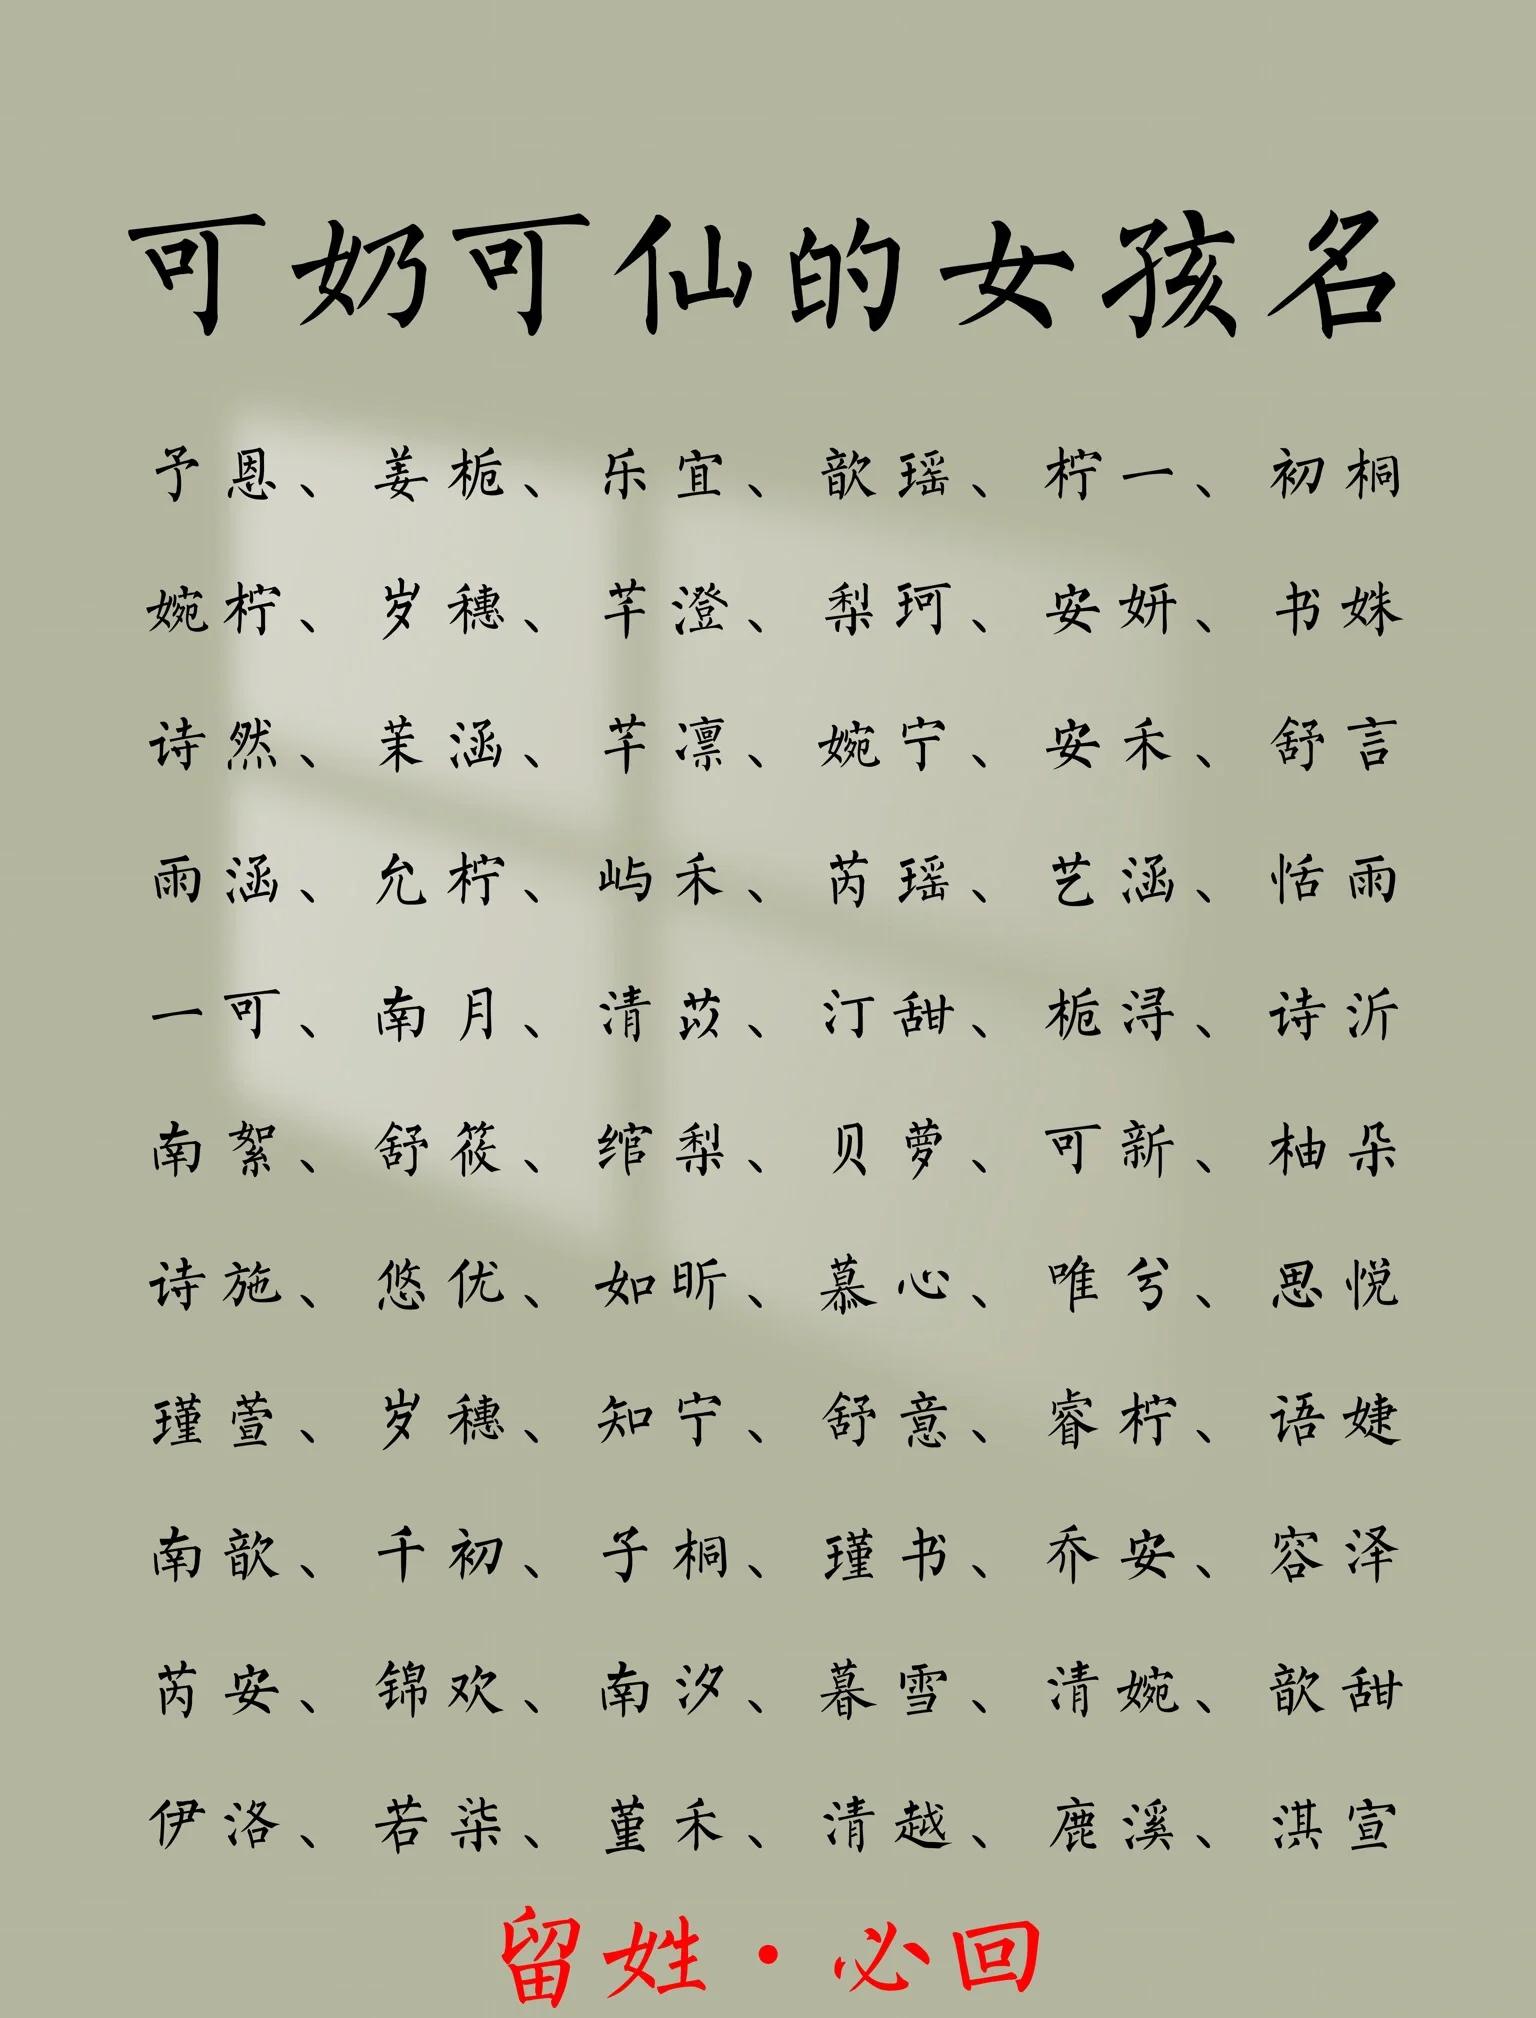 可奶可仙的女孩名
予恩、姜栀、乐宜、歆瑶、柠一、初桐
婉柠、岁穗、芊澄、梨珂、安妍、书姝
诗然、茉涵、芊凛、婉宁、安禾、舒言
雨涵、允柠、屿禾、芮瑶、艺涵、恬雨
一可、南月、清苡、汀甜、栀浔、诗沂
南絮、舒筱、绾梨、贝萝、可新、柚朵
诗施、悠优、如昕、慕心、唯兮、思悦
瑾萱、岁穗、知宁、舒意、睿柠、语婕
南歆、千初、子桐、瑾书、乔安、容泽
芮安、锦欢、南汐、暮雪、清婉、歆甜
伊洛、若柒、堇禾、清越、鹿溪、淇宣
留姓·必回